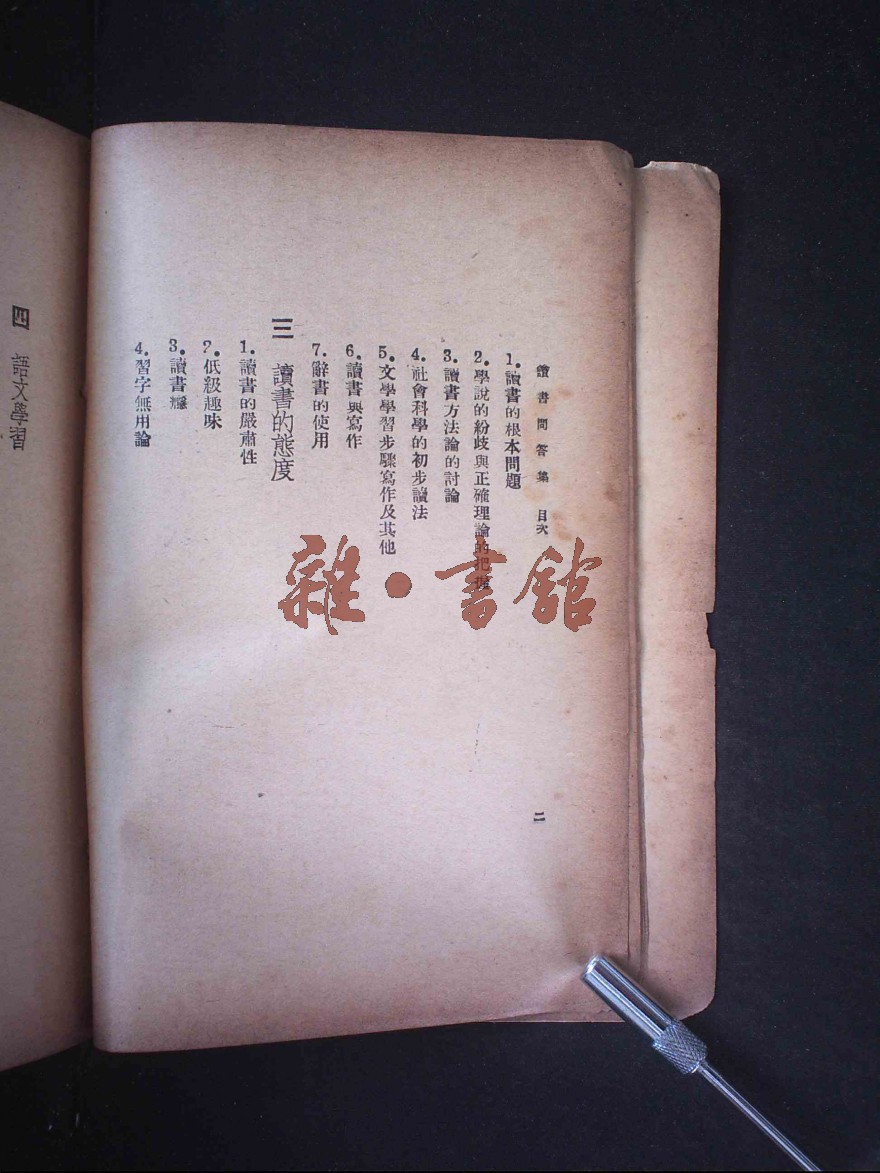 讀書問答集 目次
1.讀書的根本問題
2.學說的紛歧與正確理論的把握
3.讀書方法論的討論
4.社會科學的初步讀法
5.文學學習步驟寫作及其他
6.讀書與寫作
7.辭書的使用
三 讀書的態度
1.讀書的嚴肅性
2.低級趣味
3.讀書癮
4.習字無用論
二
四 語文學習
雜·書館